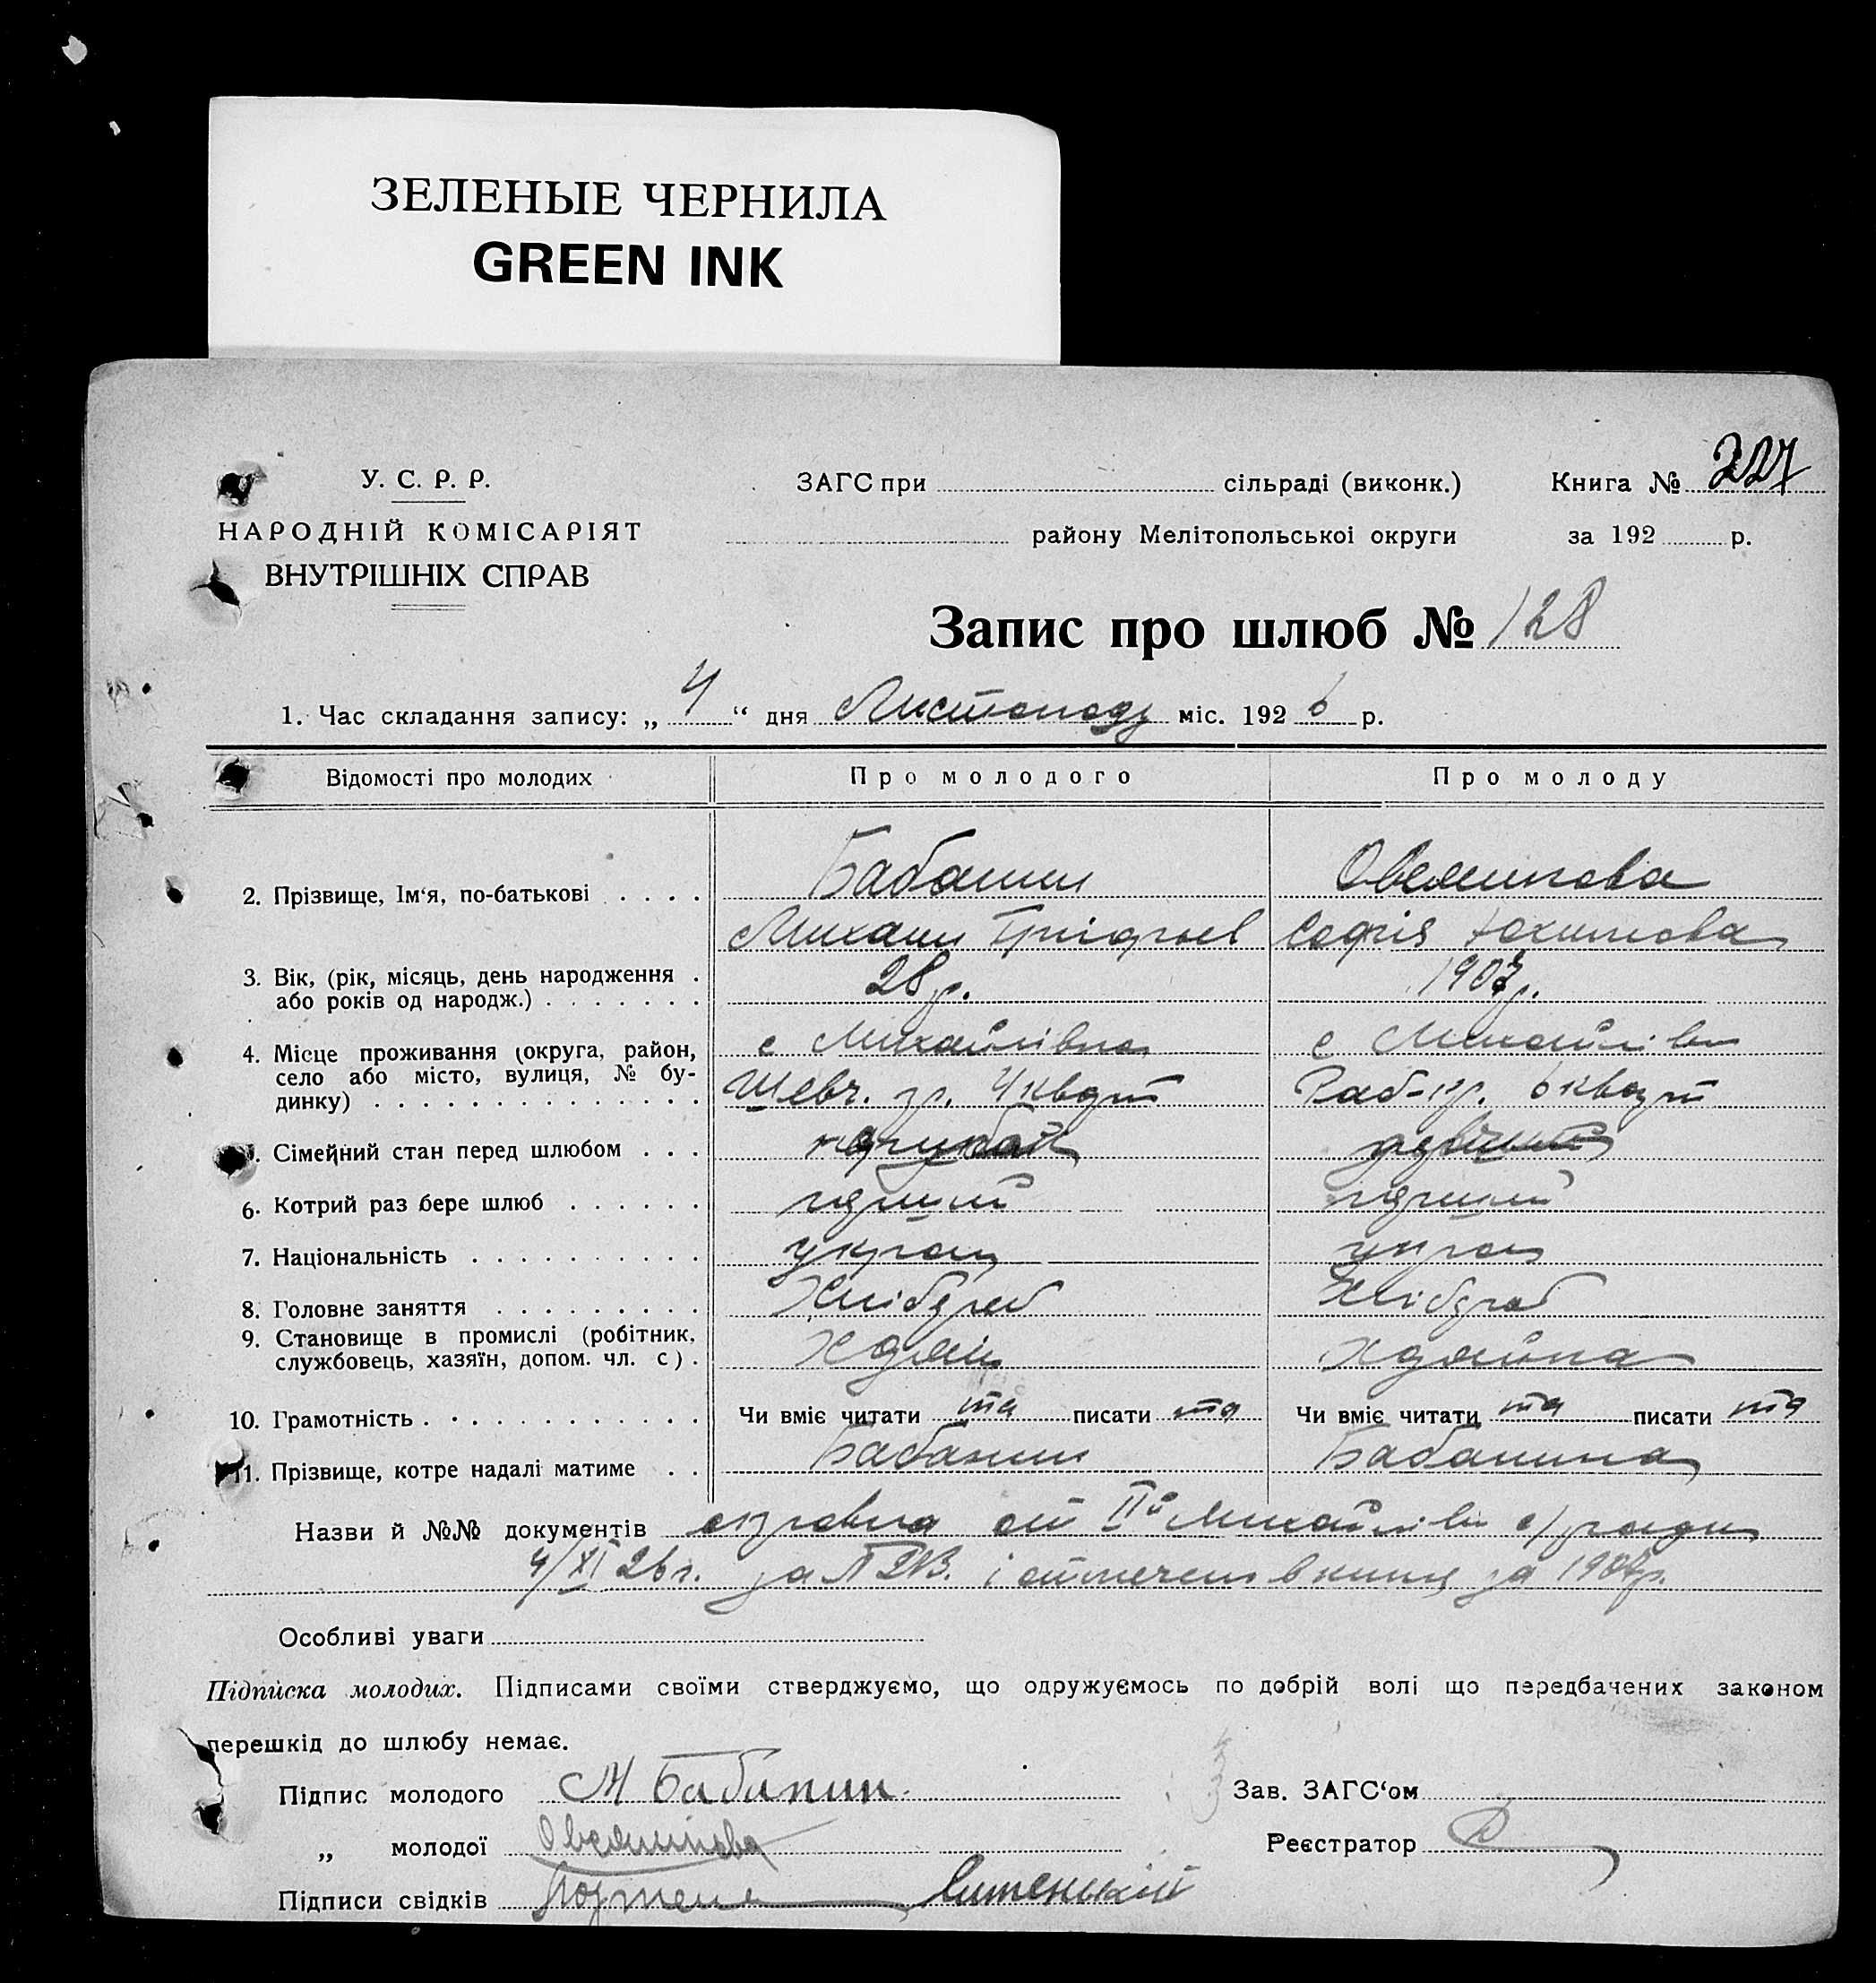 ЗЕЛЕНЫЕ ЧЕРНИЛА
GREEN INK
У. С. Р. Р.
НАРОДНІЙ КОМІСАРІЯТ
ВНУТРІШНІХ СПРАВ
ЗАГС при сільраді (виконк.)
району Мелітопольскої округи
Книга № 227
за 192 р.
Запис про шлюб № 128
1. Час складання запису: „ 4 “ дня Листопаду міс. 1926 р.
Відомості про молодих Про молодого Про молоду
2. Прізвище, Ім'я, по-батькові Бабанин Овсяникова
Михаил Софія Юхимова
3. Вік, (рік, місяць, день народження 28 р. 1907 р.
або років од народж.)
4. Місце проживання (округа, район, с Михайлівка с Михайлівка
село або місто, вулиця, № бу- Шевч. гр. 4 кварт Раб-гр. 6 кварт
динку)
5. Сімейний стан перед шлюбом
6. Котрий раз бере шлюб перший перший
7. Національність україн україн
8. Головне заняття Хлібороб Хлібороб
9. Становище в промислі (робітник,
службовець, хазяїн, допом. чл. с).
10. Грамотність Чи вміє читати та писати та Чи вміє читати та писати та
11. Прізвище, котре надалі матиме Бабанин Бабанина
Назви й №№ документів от II й Михайлівк с/ради
4/XI 26 г. за № і за
Особливі уваги
Підписка молодих. Підписами своїми стверджуємо, що одружуємось по добрій волі що передбачених законом
перешкід до шлюбу немає.
Підпис молодого М Бабанин Зав. ЗАГС'ом
„ молодої Овсяникова Реєстратор
Підписи свідків